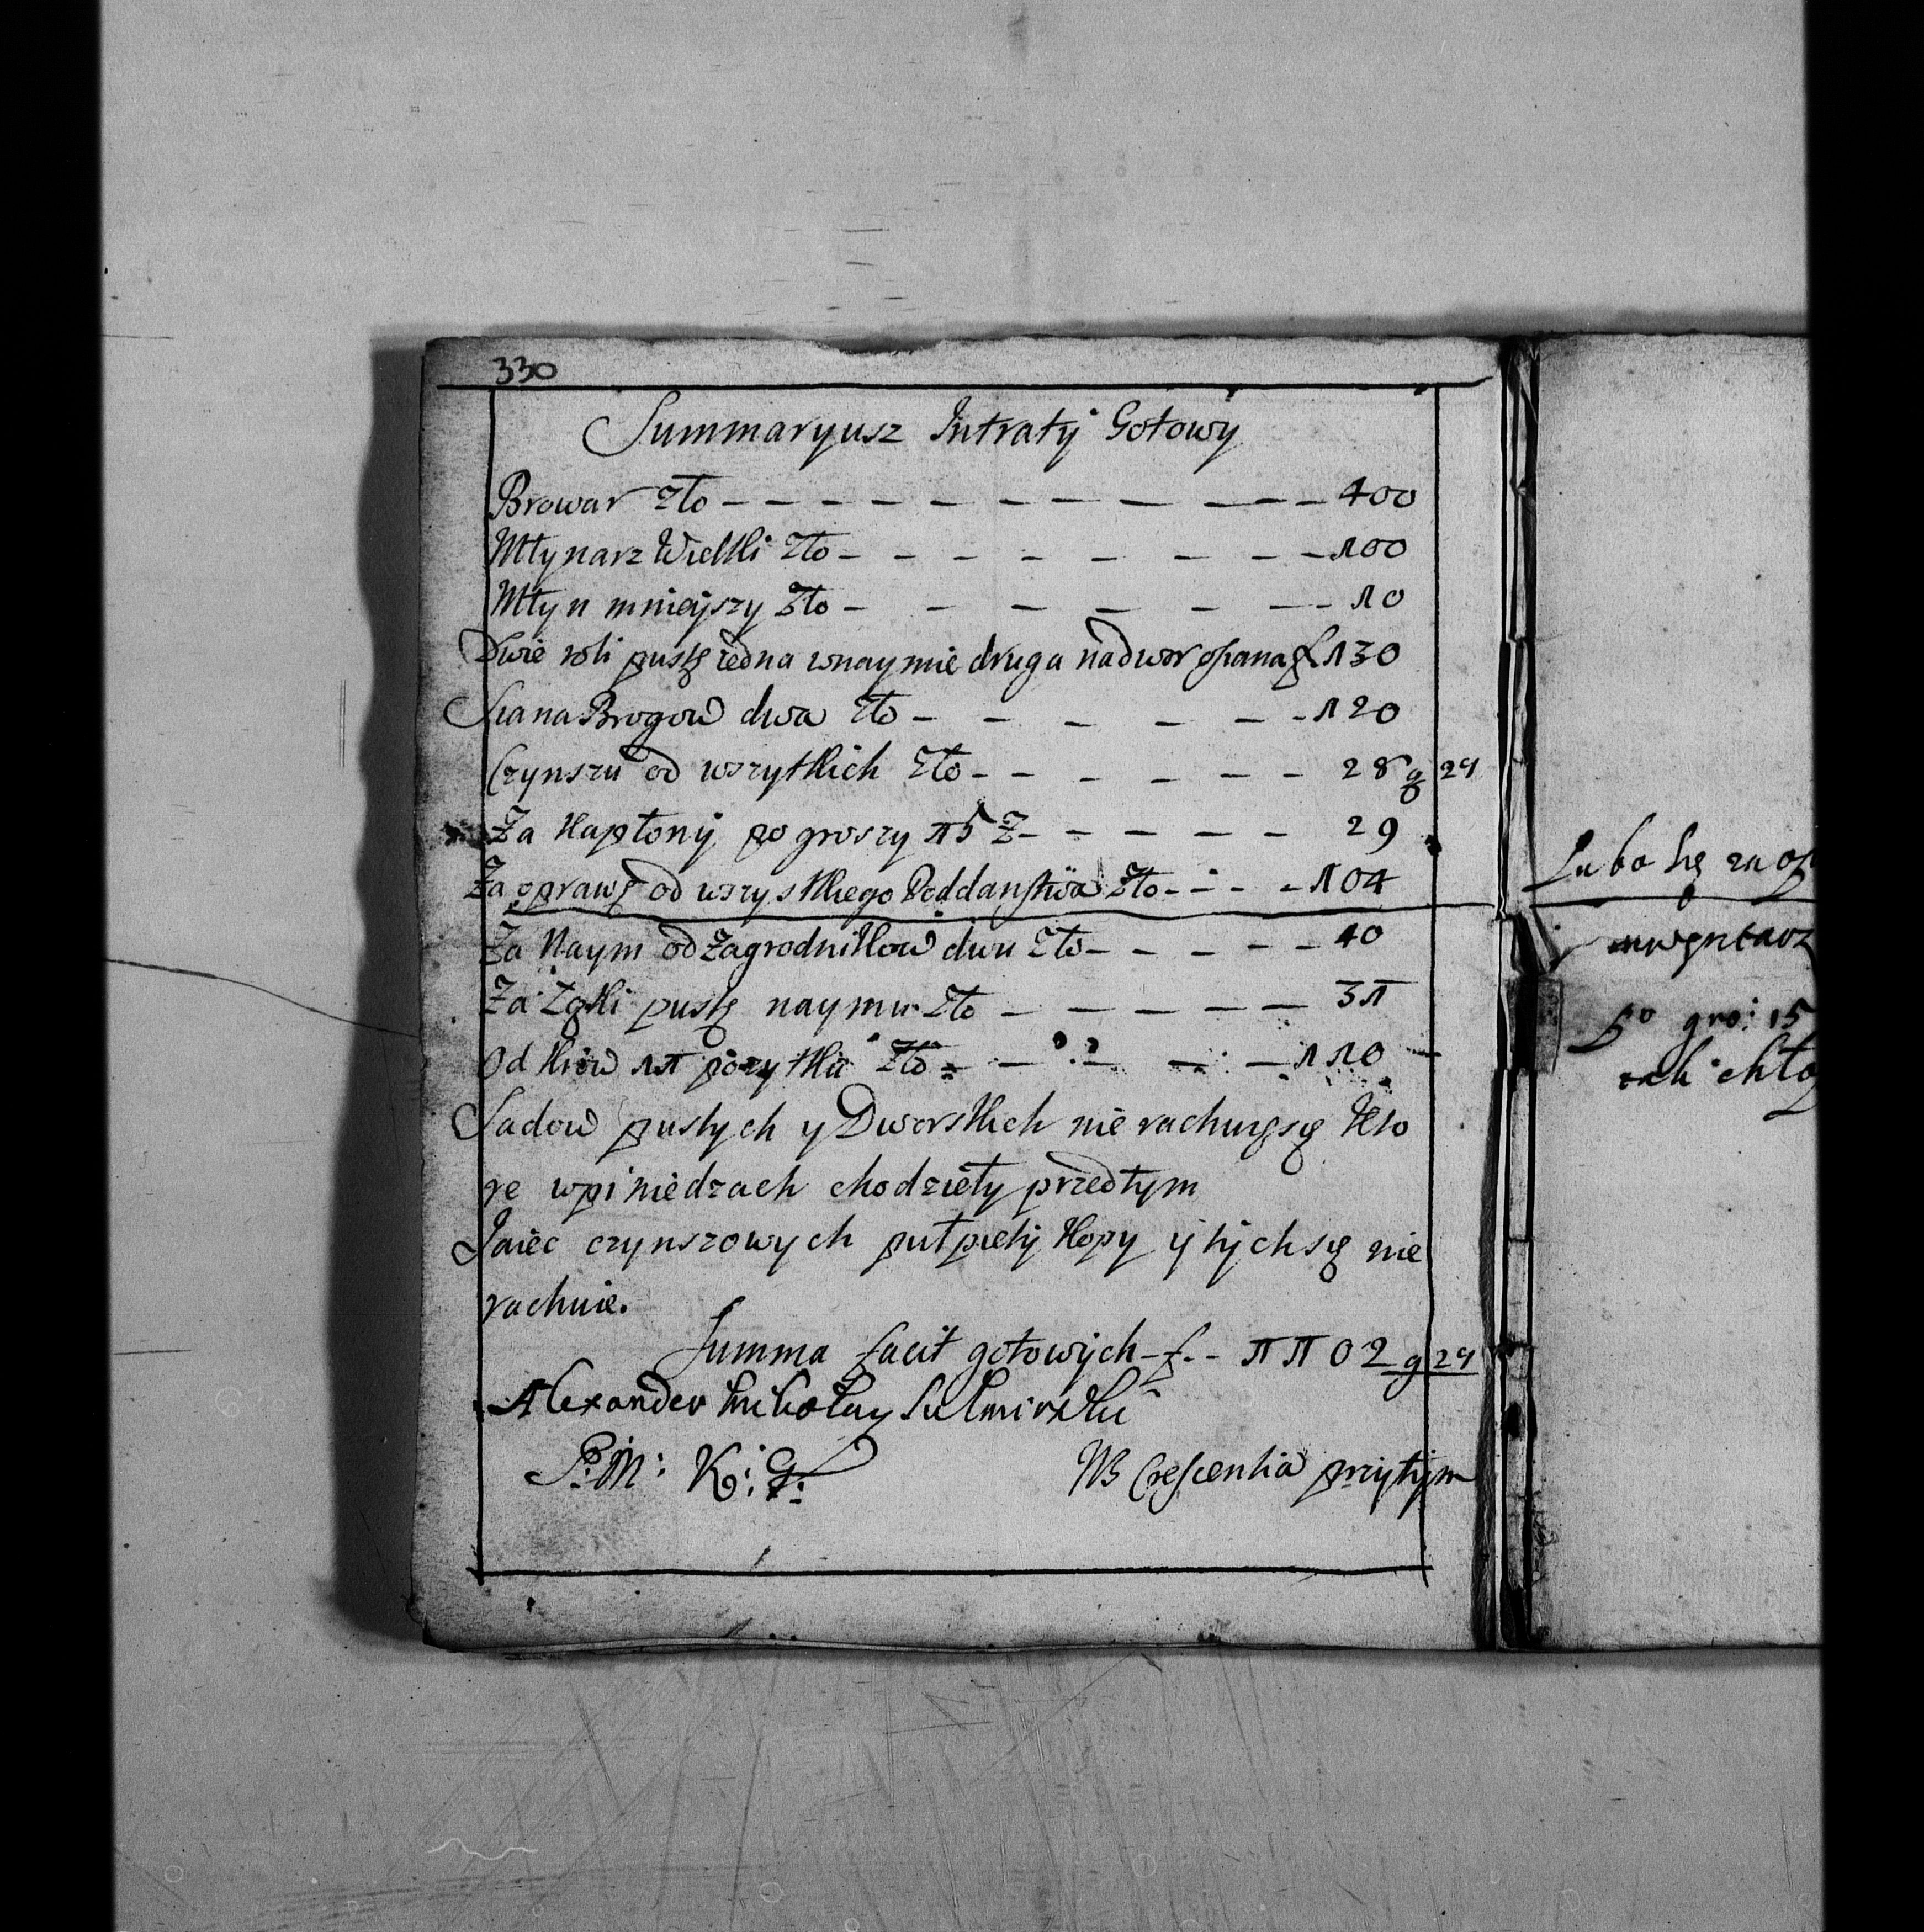 330
Summaryusz Intraty Gotowy
Browar Zło - - - - - - - - - - 400
Młynarz Wielki Zło - - - - - - - 100
Młyn mnieyszy Zło - - - - - - - 10
Dwie roli pustę iedna wnaymie druga nadwor ośiana f 130
Siana Brogow dwa Zło - - - - - - 120
Czynszu od wszytkich Zło - - - - - - 28 g 24
Za Kapłony po groszy 15 Z - - - - - 29
Za oprawę od wszystkiego Poddaństwa Zło - - - - 104
Za Naym od Zagrodnikow dwu Zło - - - - - 40
Za Zątki pustę naymu Zło - - - - - 31
Od Krow 11 pożytku Zło - - - - 110
Sadow pustych y Dworskich nie rachuięsię Kto
re wpiniedzach chodzieły przedtym
Jaiec czynszowych pułpięty Kopy y tych się nie
rachuie.
Summa facit gotowych - f. - 1102 g 24
Alexander Mikołay Sulmirski
P: M: K: G:
NB Crescentia przytym
Lubo się za op
inwentarz
po gro: 15
chło